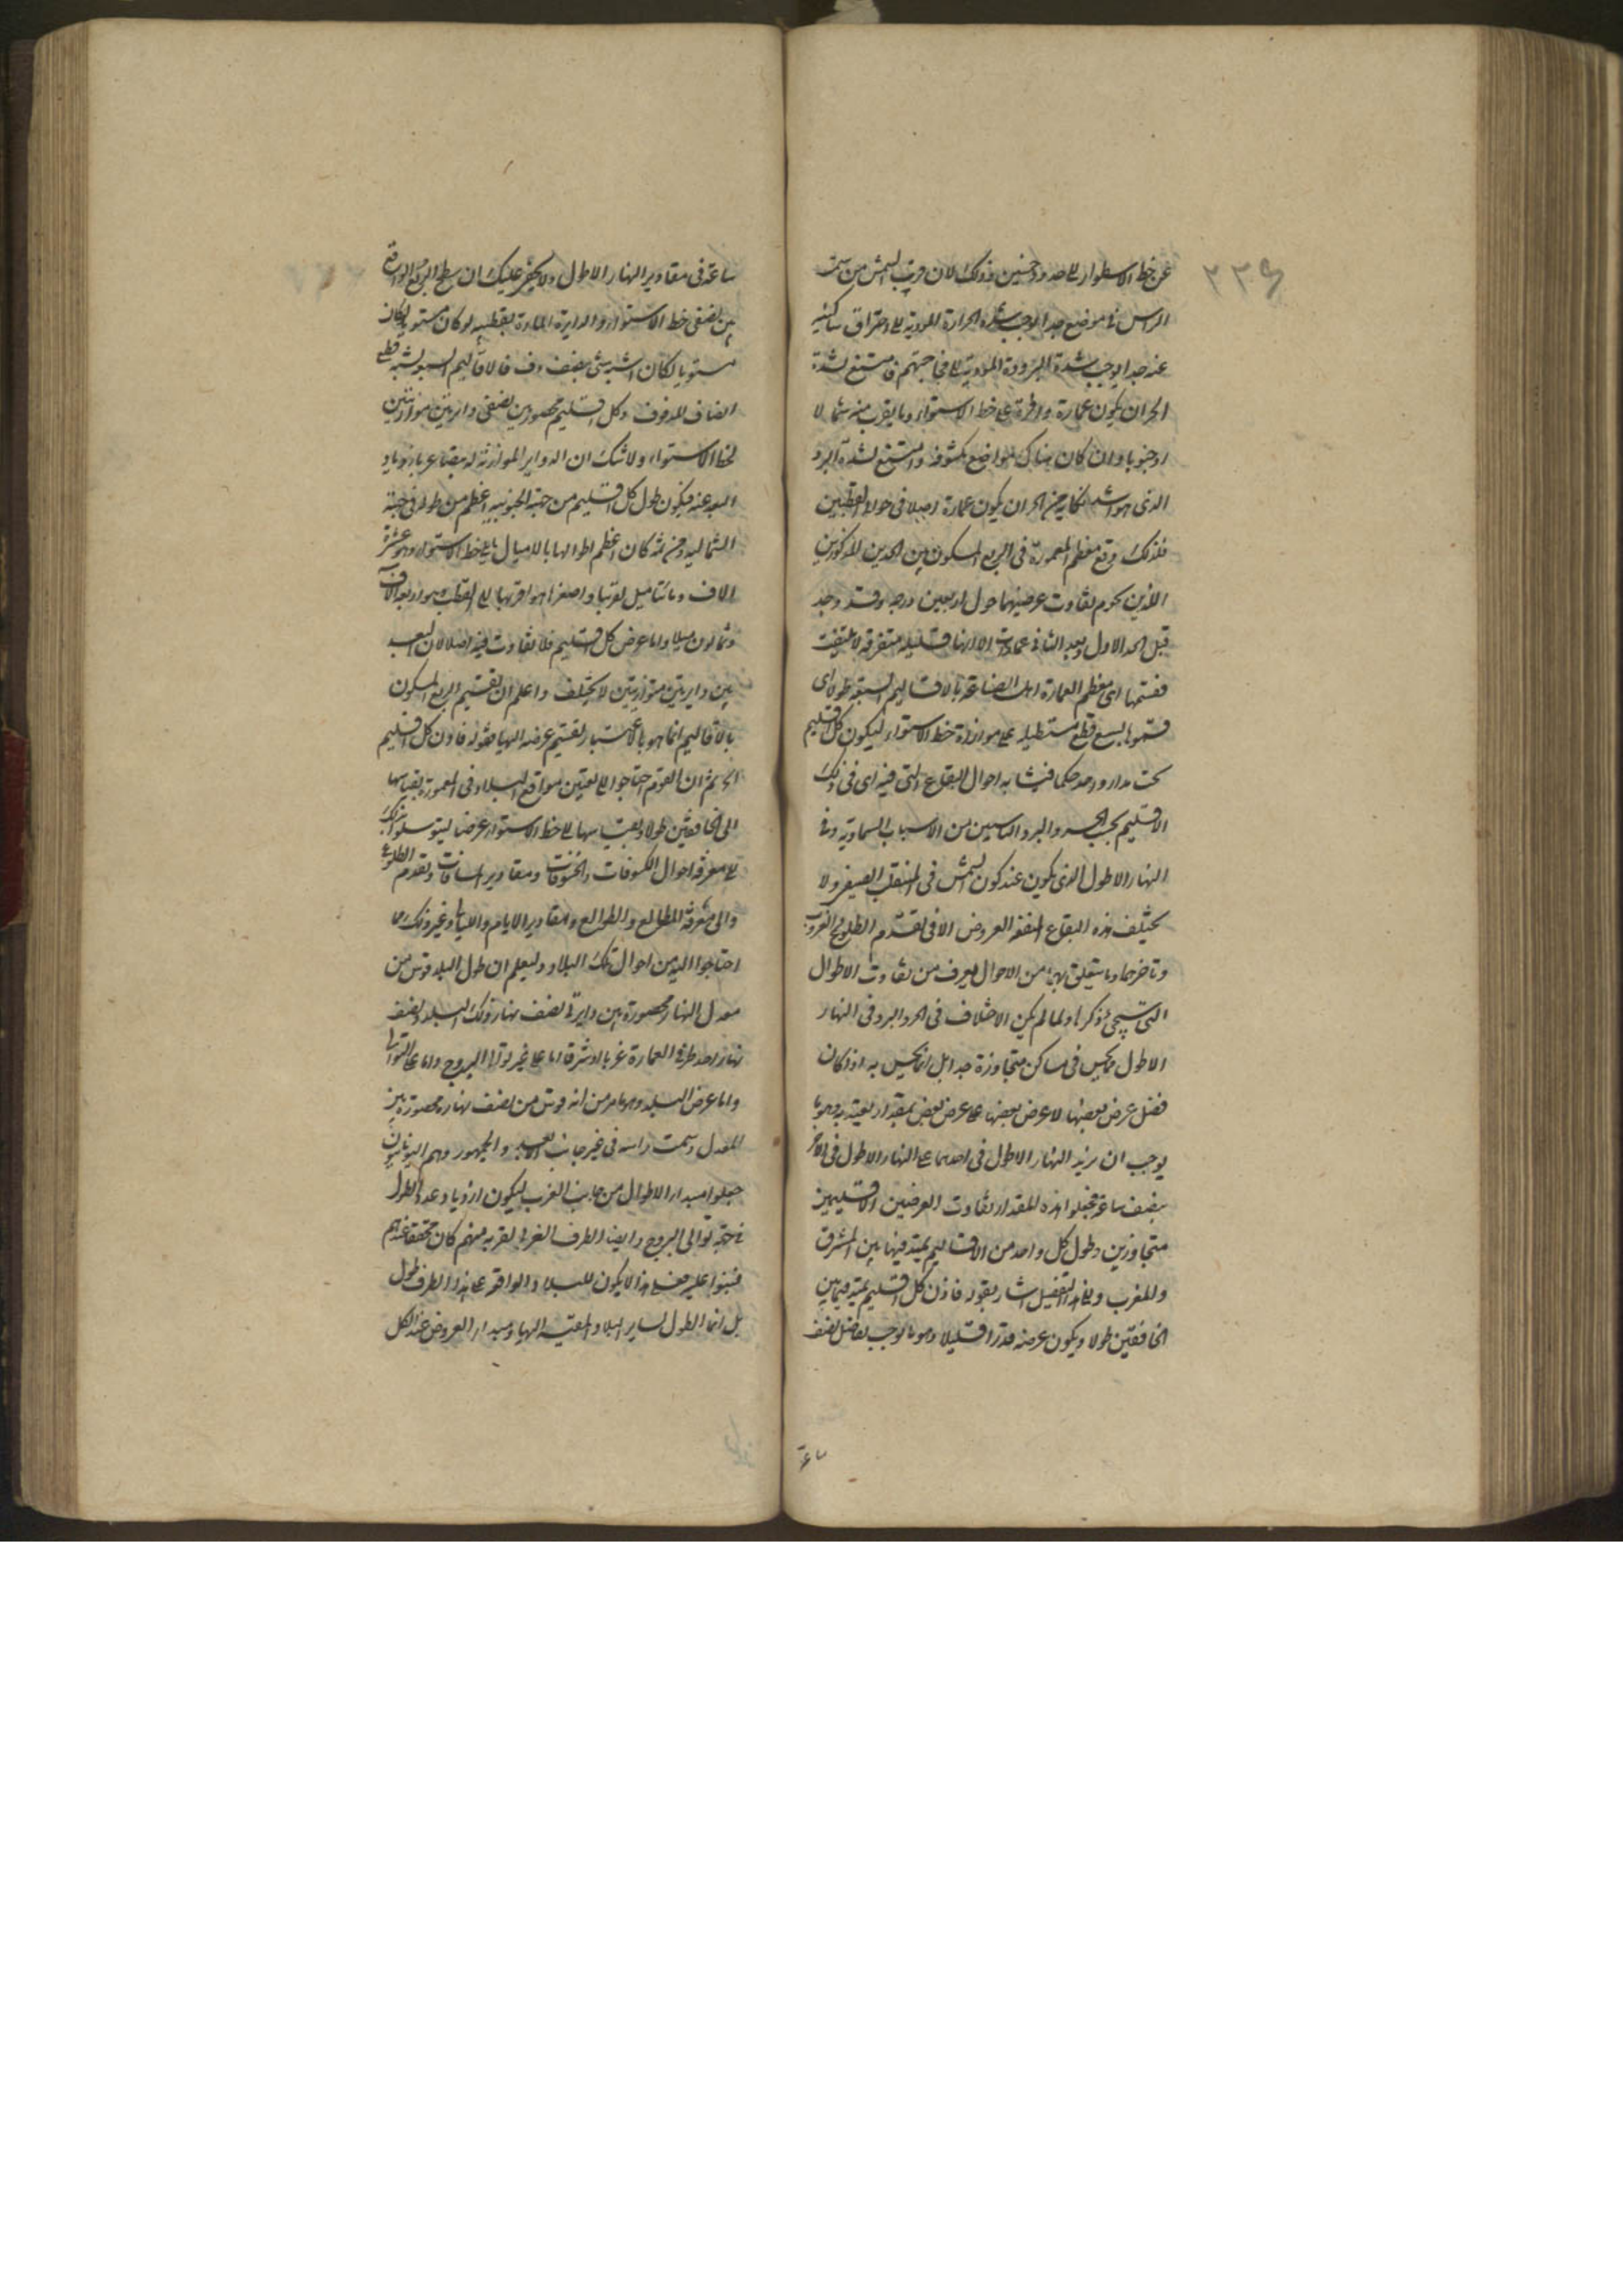 ٢٣٩
عن خط الاستواء الى حدود خمسين وذلك لان قرب الشمس من سمت
الراس فى موضع جدا يوجب شدة الحرارة المودية الى احتراق ساكنيه
عنه جدا يوجب شدة البرودة المودية الى فجاجتهم فامتنع لشدة
الحر ان يكون عمارة وافرة على خط الاستواء وما يقرب منه شمالا
او جنوبا وان كان هناك المواضع مكشوفة وامتنع لشدة البرد
الذى هو اشد نكاية من الحر ان يكون عمارة اصلا فى حوالى القطبين
فلذلك وقع معظم المعمورة فى الربع المسكون بين الحدين المذكورين
اللذين يحوم تفاوت عرضيهما حول اربعين درجة وقد وجد
قبل الحد الاول وبعد الثانى عمارات الا انها قليلة متفرقة لا يلتفت
فقسمها اى معظم العمارة اهل الصناعة بالاقاليم السبعة طولا اى
قسموها بسبع قطع مستطيلة على موازاة خط الاستواء ليكون كل اقليم
تحت مدار واحد حكما فيتشابه احوال البقاع التى فيه اى فى ذلك
الاقليم بحسب الحر والبرد الناشيين من الاسباب السماوية وفى
النهار الاطول الذى يكون عند كون الشمس فى المنقلب الصيفى ولا
يختلف هذه البقاع المتفقة العروض الا فى تقدم الطلوع والغروب
وتاخرهما وما يتعلق بهما من الاحوال يعرف من تفاوت الاطوال
التى سيجئ ذكرها ولما لم يكن الاختلاف فى الحر والبرد وفى النهار
الاطول مما يحس فى مساكن متجاوزة جدا بل انما يحس به اذا كان
فضل عرض بعضها لا عرض بعضها على عرض بعض بمقدار يعتد به وهو ما
يوجب ان يزيد النهار الاطول فى احدهما على النهار الاطول فى الاخر
بنصف ساعة فجعلوا هذه المقدار تفاوت العرضين الاقليمين
متجاوزين وطول كل واحد من الاقاليم يمتد فيها بين المشرق
والمغرب والى هذا التفصيل اشار بقوله فاذن كل اقليم يمتد فيما بين
الخافقين طولا ويكون عرضه قدرا قليلا وهو ما يوجب تفاضل نصف
ساعة فى مقادير النهار الاطول ولا يخفى عليك ان سطح الربع الواقع
بين نصفى خط الاستواء والدايرة المارة بقطبيه لو كان مستويا لكان
مستويا لكان اشبه شئ بنصف دف فالاقاليم السبعة تشبه قطع
انصاف الدفوف وكل اقليم محصور بين نصفى دايرتين موازيتين
لخط الاستواء ولا شك ان الدواير الموازية له يتصاغر بازدياد
البعد عنه فيكون طول كل اقليم من جهة الجنوبية اعظم من طوله فى جهة
الشمالية ومن ثم كان اعظم اطوالها بالاميال ما يلى خط الاستواء وهو عشرة
الاف ومائتا ميل تقريبا واصغرها هو اقربها الى القطب وهو اربعة الاف
وثمانون ميلا واما عرض كل اقليم فلا تفاوت فيه اصلا لان البعد
بين دايرتين متوازيتين لا يختلف واعلم ان تقسيم الربع المسكون
بالاقاليم انما هو باعتبار تقسيم عرضه اليها فقوله فاذن كل اقليم
الخ ثم ان القوم احتاجوا الى تعيين مواقع البلاد فى المعمورة بقياسها
الى الخافقين طولا وبقياسها الى خط الاستواء عرضا ليتوسلوا بذلك
الى معرفة احوال الكسوفات والخسوفات ومقادير المسافات وتقدم الطلوع
والى معرفة المطالع والطوالع ومقادير الايام والليالى وغير ذلك مما
احتاجوا اليه من احوال تلك البلاد وليعلم ان طول البلد قوس من
معدل النهار محصورة بين دايرتى نصف نهار ذلك البلد ونصف
نهار احد طرفى العمارة غربا او شرقا اما على غير توالى البروج واما على التوالى
واما عرض البلد وهو ما مر من انه قوس من نصف نهاره محصورة بين
المعدل وسمت راسه فى غير جانب الابعد والجمهور وهم اليونانيون
جعلوا مبدا الاطوال من جانب الغرب ليكون ازدياد عدد الطول
فى جهة توالى البروج وايضا الطرف الغربى لقربه منهم كان محققا عندهم
فبنوا عليه فعلى هذا لا يكون للبلاد الواقعة على هذا الطرف طول
بل انما الطول لساير البلاد المقيسة اليها ومبدا العروض عند الكل